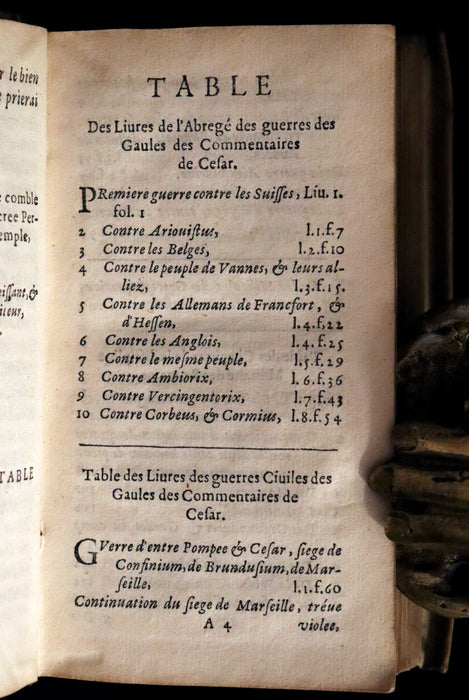 r le bien
prierai
comble
cree Per-
emple,
issant, &
uieur,
TABLE
TABLE
Des Liures de l'Abregé des guerres des
Gaules des Commentaires
de Cesar.
PRemiere guerre contre les Suisses, Liu. 1.
fol. 1
2 Contre Ariouistus, l.1.f.7
3 Contre les Belges, l.2.f.10
4 Contre le peuple de Vannes, & leurs al-
liez, l.3.f.15.
5 Contre les Allemans de Francfort, &
d'Hessen, l.4.f.22
6 Contre les Anglois, l.4.f.25
7 Contre le mesme peuple, l.5.f.29
8 Contre Ambiorix, l.6.f.36
9 Contre Vercingentorix, l.7.f.43
10 Contre Corbeus, & Cormius, l.8.f.54
Table des Liures des guerres Ciuiles des
Gaules des Commentaires de
Cesar.
GVerre d'entre Pompee & Cesar, siege de
Confinium, de Brundusium, de Mar-
seille, l.1.f.60
Continuation du siege de Marseille, tréue
A 4 violee,